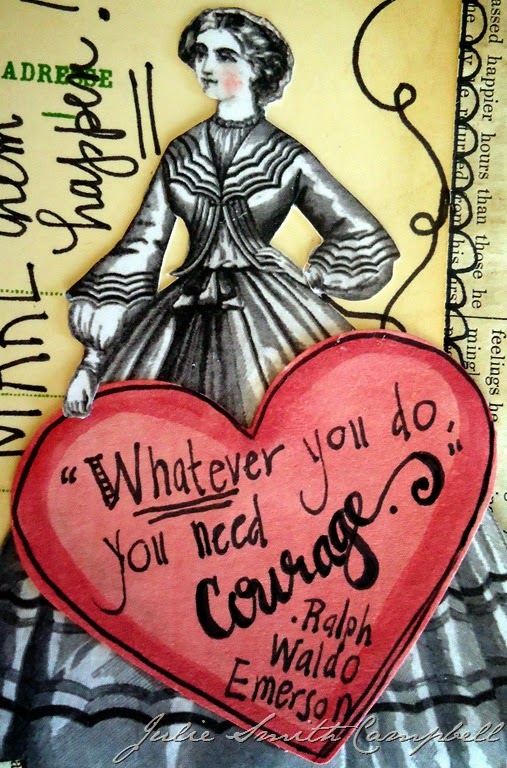 ADRESSE
MAKE them
happen!
assed happier hours than those he
feelings he
"Whatever you do,
you need
Courage."
·Ralph
Waldo
Emerson
Julie Smith Campbell